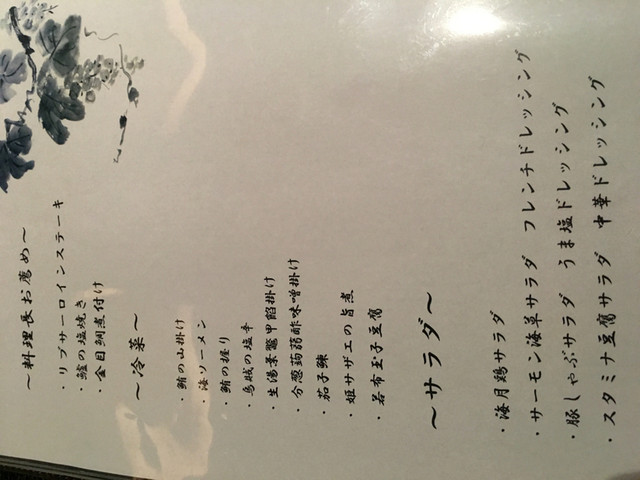 ～料理長お薦め～
・リブサーロインステーキ
・鱸の塩焼き
・金目鯛煮付け
～冷菜～
・鮪の山掛け
・海ソーメン
・鮪の握り
・烏賊の塩辛
・生湯葉鼈甲餡掛け
・分葱蒟蒻酢味噌掛け
・茄子鰊
・姫サザエの旨煮
・若布玉子豆腐
～サラダ～
・海月鶏サラダ
・サーモン海草サラダ　フレンチドレッシング
・豚しゃぶサラダ　うま塩ドレッシング
・スタミナ豆腐サラダ　中華ドレッシング